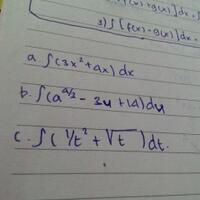 [f(x) + g(x)] dx =
3) ∫ [f(x) - g(x)] dx =
a. ∫(3x² + 4x) dx
b. ∫(a^(4/2) - 3u + 14) du
c. ∫( 1/t² + √t ) dt.